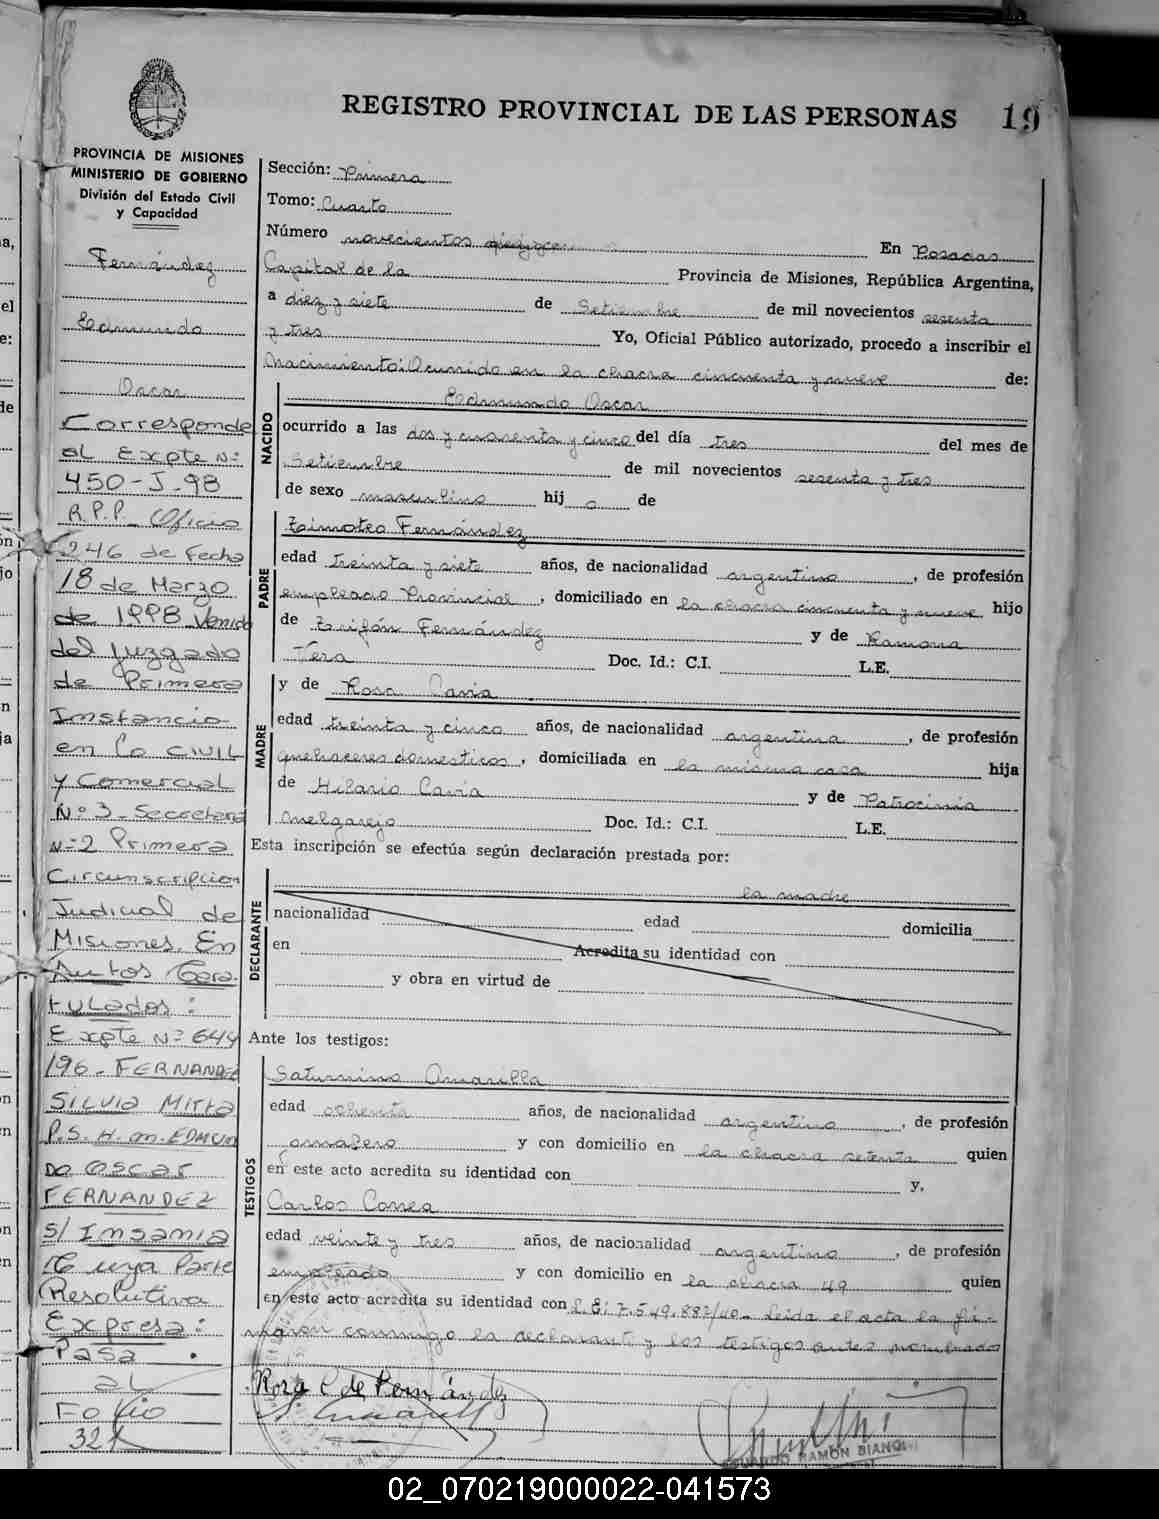 REGISTRO PROVINCIAL DE LAS PERSONAS 19
PROVINCIA DE MISIONES
MINISTERIO DE GOBIERNO
División del Estado Civil
y Capacidad
Fernández
Edmundo
Oscar
Corresponde
al Expte Nº
450-J-98
R.P.P. Oficio
246 de Fecha
18 de Marzo
de 1998 Venido
del Juzgado
de Primera
Instancia
en lo CIVIL
y Comercial
Nº 3 - Secretaria
Nº 2 Primera
Circunscripcion
Judicial de
Misiones. En
Autos Cara
tulados:
Expte Nº 644
196 - FERNANDEZ
SILVIA MIRTA
P.S. H. m. EDMUN
DO OSCAR
FERNANDEZ
S/ Insania
Cuya Parte
Resolutiva
Expresa:
Pasa
al
Folio
321
Sección: Primera
Tomo: Cuarto
Número novecientos En Posadas
Capital de la Provincia de Misiones, República Argentina,
a diez y siete de Setiembre de mil novecientos sesenta
y tres Yo, Oficial Público autorizado, procedo a inscribir el
Nacimiento: Ocurrido en la chacra cincuenta y nueve de:
NACIDO
Edmundo Oscar
ocurrido a las dos y cuarenta y cinco del día tres del mes de
Setiembre de mil novecientos sesenta y tres
de sexo masculino hij o de
PADRE
Timoteo Fernández
edad treinta y siete años, de nacionalidad argentino, de profesión
empleado Provincial, domiciliado en la chacra cincuenta y nueve hijo
de Fernández y de Ramona
Vera Doc. Id.: C.I. L.E.
MADRE
y de Rosa Caria
edad treinta y cinco años, de nacionalidad argentina, de profesión
quehaceres domesticos, domiciliada en la misma casa hija
de Hilario Caria y de Patrocinia
Melgarejo Doc. Id.: C.I. L.E.
Esta inscripción se efectúa según declaración prestada por:
DECLARANTE
la madre
nacionalidad edad domicilia
en Acredita su identidad con
y obra en virtud de
Ante los testigos:
TESTIGOS
Saturnino Amarilla
edad ochenta años, de nacionalidad argentino, de profesión
y con domicilio en la chacra setenta quien
en este acto acredita su identidad con y,
Carlos Correa
edad veinte y tres años, de nacionalidad argentino, de profesión
empleado y con domicilio en la chacra 49 quien
en este acto acredita su identidad con L.E: 7.549.882/40- Leida el acta la fir-
maron conmigo la declarante y los testigos antes nombrados
Rosa C de Fernández
RAMON BIANCHI
02_070219000022-041573